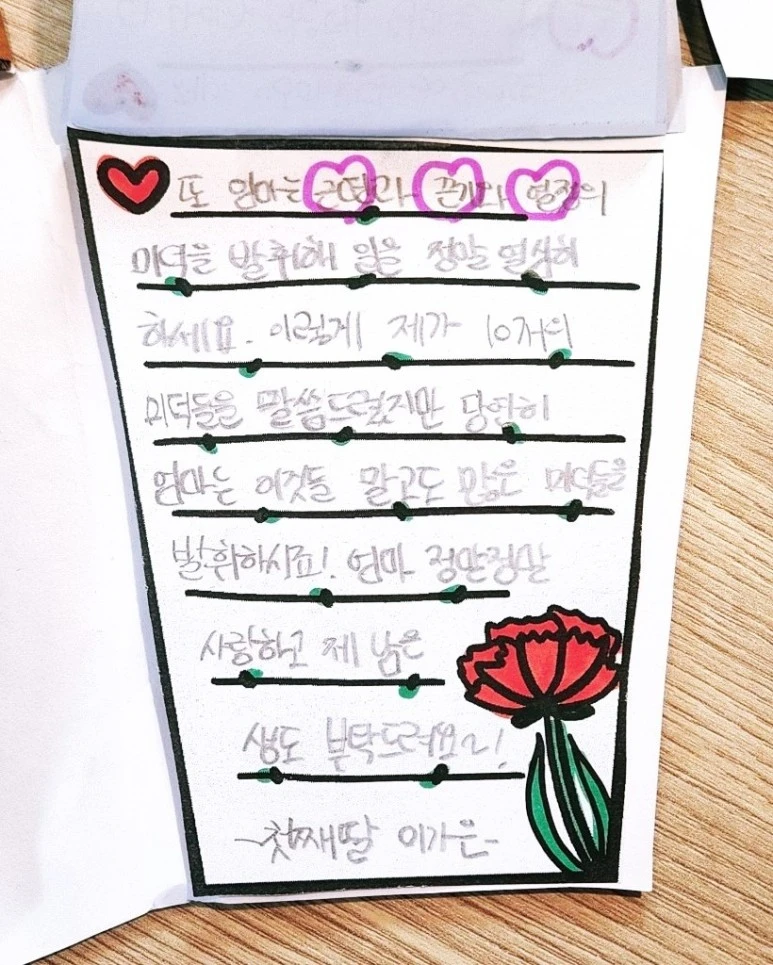 또 엄마는 근면과 끈기와 열정의
미덕을 발휘해 일을 정말 열심히
하세요. 이렇게 제가 10개의
미덕들을 말씀드렸지만 당연히
엄마는 이것들 말고도 많은 미덕들을
발휘하시죠! 엄마 정말정말
사랑하고 제 남은
생도 부탁드려요~!
-첫째딸 이가은-